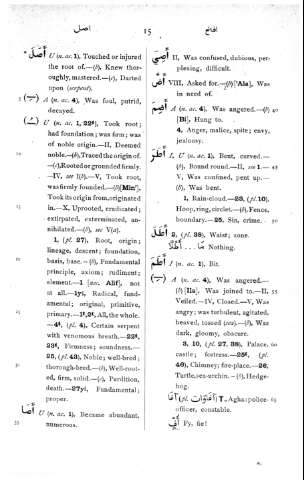 اصل 15 افتح
أَصَلَ U (n. ac. 1), Touched or injured
the root of.—(b), Knew thor-
oughly, mastered.—(c), Darted
upon (serpent).
A (n. ac. 4), Was foul, putrid,
decayed.
U (n. ac. 1, 22ᵗ), Took root;
had foundation; was firm; was
of noble origin.—II, Deemed
noble.—(b), Traced the origin of.
—(c), Rooted or grounded firmly.
—IV, see I(b).—V, Took root,
was firmly founded.—(b) [Min],
Took its origin from, originated
in.—X, Uprooted, eradicated;
extirpated, exterminated, an-
nihilated.—(b), see V(a).
1, (pl. 27), Root, origin;
lineage, descent; foundation,
basis, base.—(b), Fundamental
principle, axiom; rudiment;
element.—1 [acc. Alif], not
at all.—1yi, Radical, funda-
mental; original, primitive,
primary.—All, the whole.
—4ᵗ, (pl. 4), Certain serpent
with venomous breath.—22ᵗ,
23ᵗ, Firmness; soundness.—
25, (pl. 43), Noble; well-bred;
thorough-breed.—(b), Well-root-
ed, firm, solid.—(c), Perdition,
death.—27yi, Fundamental;
proper.
U (n. ac. 1), Became abundant,
numerous.
II, Was confused, dubious, per-
plexing, difficult.
VIII, Asked for.—(b) ['Ala], Was
in need of.
A (n. ac. 4), Was angered.—(b) 40
[Bi], Hung to.
4, Anger, malice, spite; envy,
jealousy.
I, U (n. ac. 1), Bent, curved.—
(b), Bound round.—II, see I.— 45
V, Was confined, pent up.—
(b), Was bent.
1, Rain-cloud.—25, (pl. 10),
Hoop, ring, circlet.—(b), Fence,
boundary.—25, Sin, crime. 50
2, (pl. 38), Waist; zone.
Nothing.
I (n. ac. 1), Bit.
A (n. ac. 4), Was angered.—
(b) [Ila], Was joined to.—II, 55
Veiled.—IV, Closed.—V, Was
angry; was turbulent, agitated,
heaved, tossed (sea).—(b), Was
dark, gloomy, obscure.
3, 10, (pl. 27, 38), Palace, 60
castle; fortress.—25ᵗ, (pl.
46), Chimney; fire-place.—26,
Turtle, sea-urchin.—(b), Hedge-
hog.
T. Agha; police- 65
officer, constable.
Fy, fie!